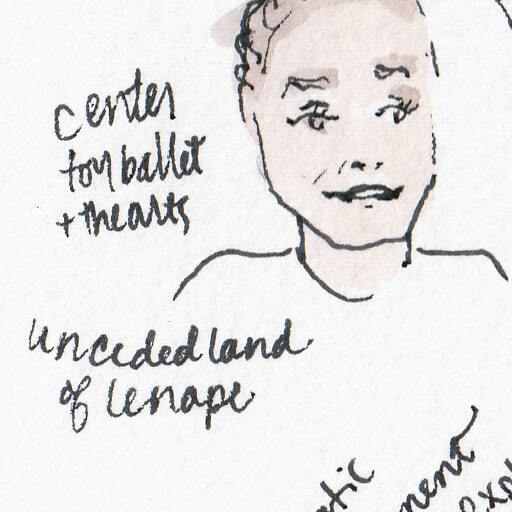 center
for ballet
+ the arts
unceded land
of lenape